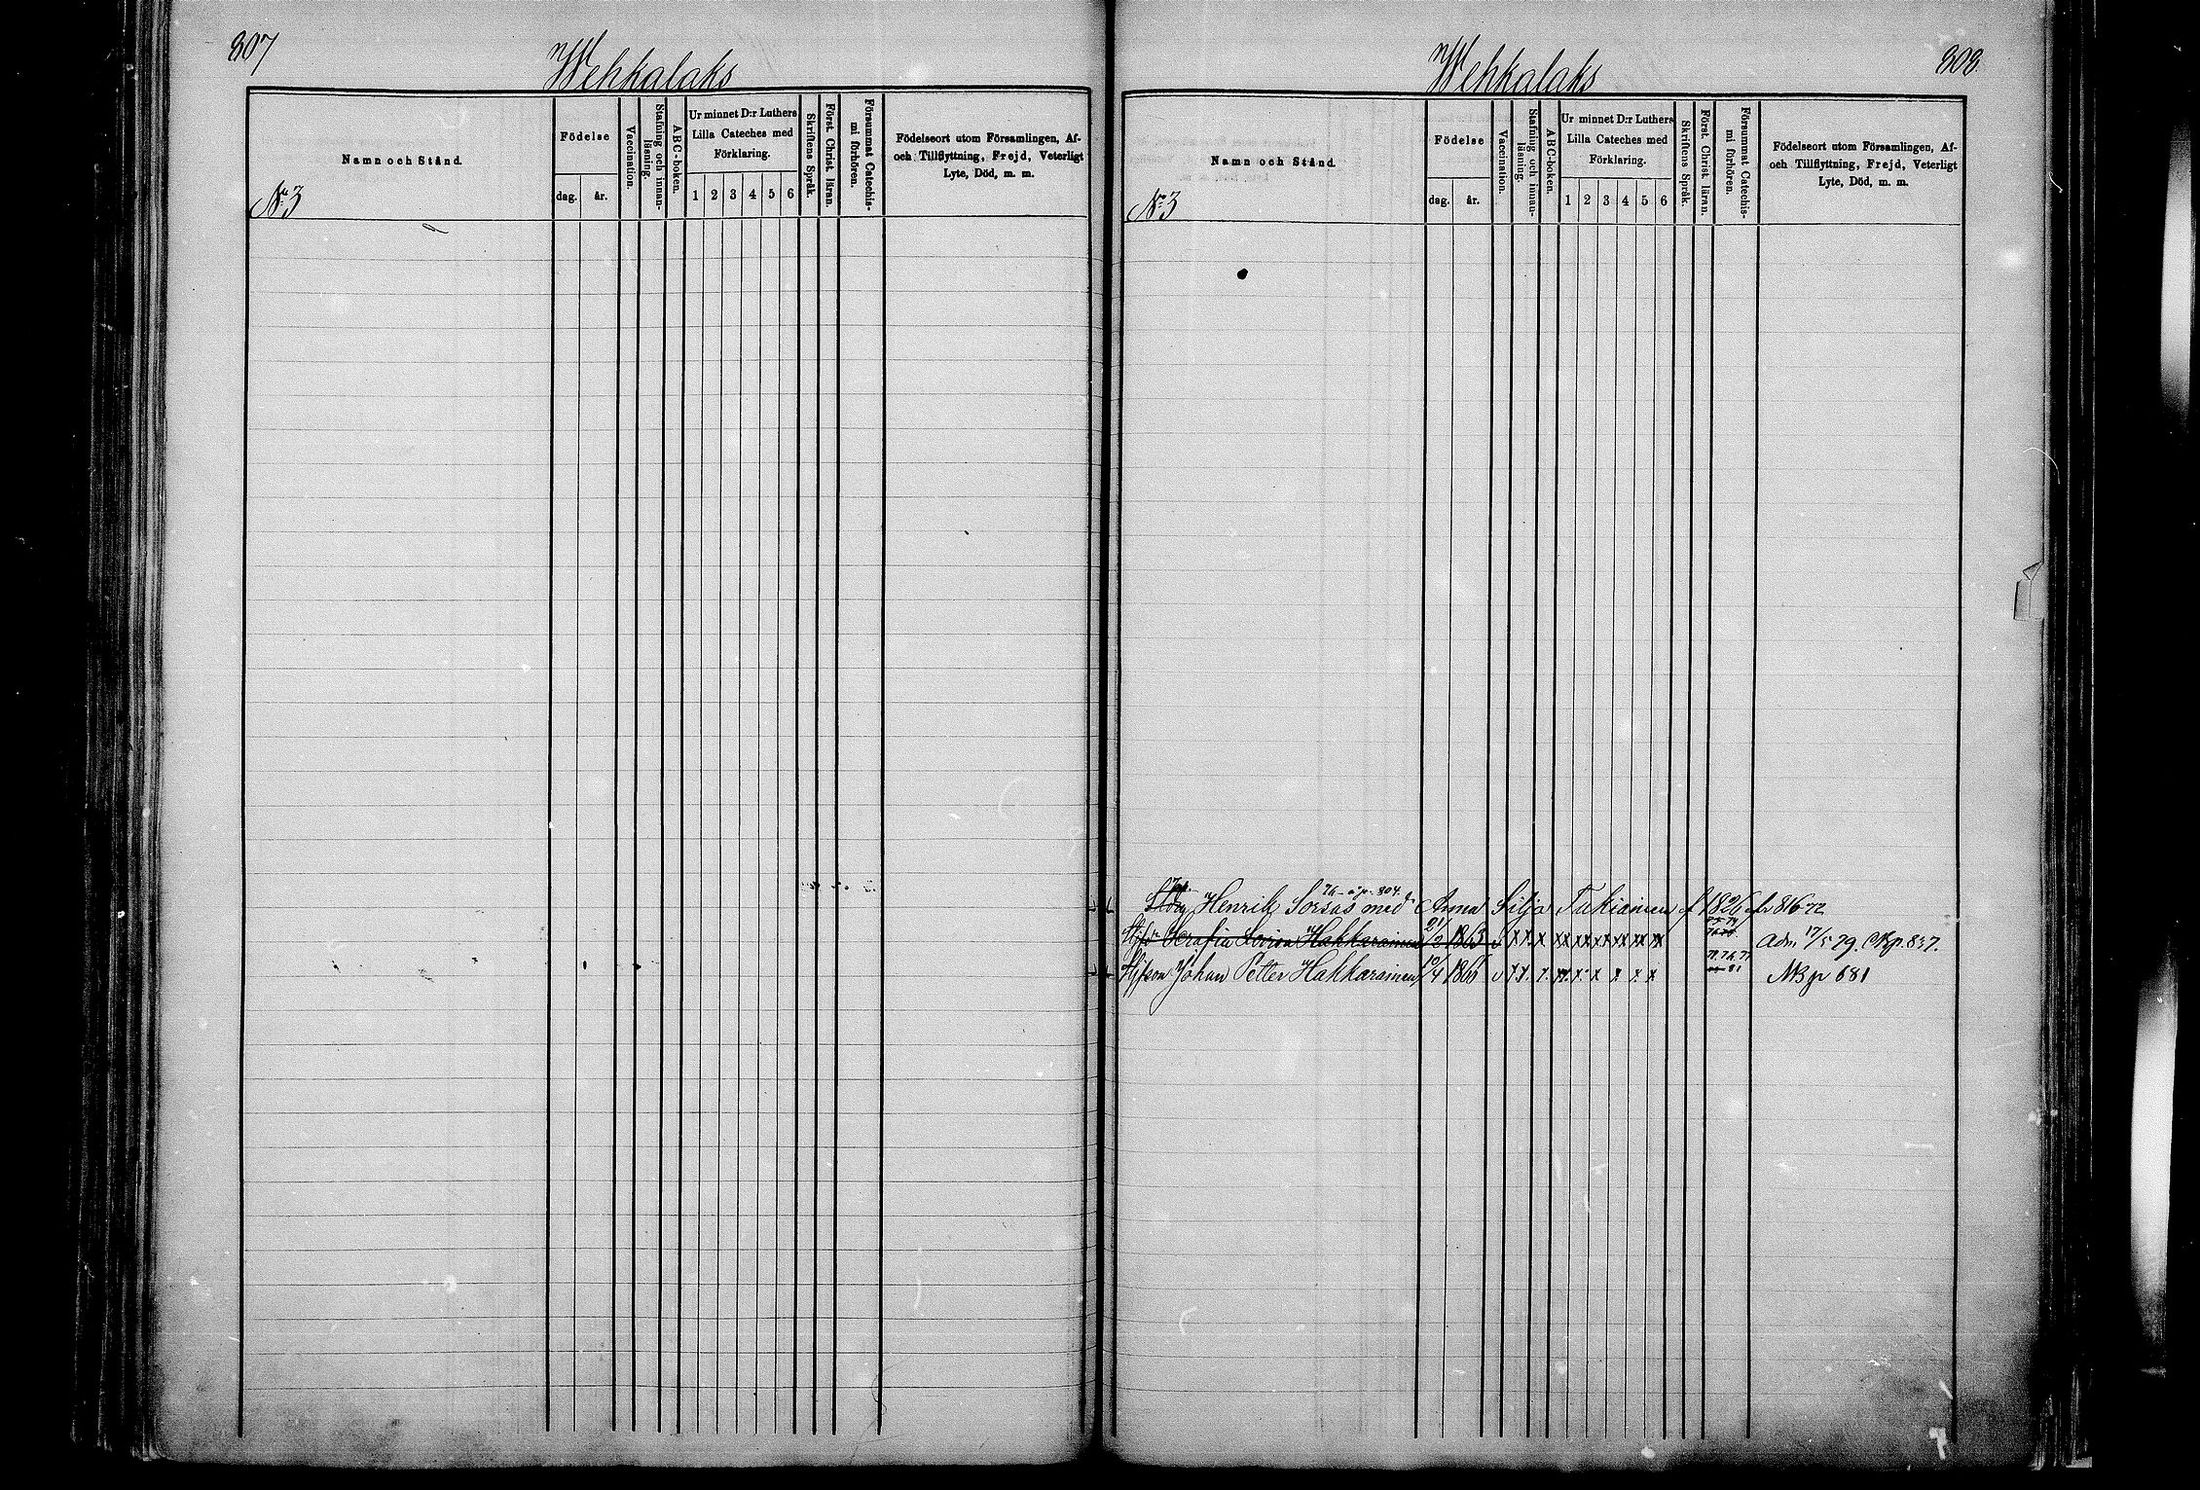 807
Wehkalaks
Namn och Stånd.
No 3
Födelse
dag.
år.
Vaccination.
Stafning och innan-
läsning.
ABC-boken.
Ur minnet D:r Luthers
Lilla Cateches med
Förklaring.
1 2 3 4 5 6
Skriftens Språk.
Först. Christ. läran.
Försummat Catechis-
mi förhören.
Födelseort utom Församlingen, Af-
och Tillflyttning, Frejd, Veterligt
Lyte, Död, m. m.
Wehkalaks
808.
Namn och Stånd.
No 3
Födelse
dag.
år.
Vaccination.
Stafning och innan-
läsning.
ABC-boken.
Ur minnet D:r Luthers
Lilla Cateches med
Förklaring.
1 2 3 4 5 6
Skriftens Språk.
Först. Christ. läran.
Försummat Catechis-
mi förhören.
Födelseort utom Församlingen, Af-
och Tillflyttning, Frejd, Veterligt
Lyte, Död, m. m.
804.
Henrik Sorsas med Anna Silja Tukiainen f 1826 fr 816 72
Serafia Lovisa Hakkarainen 21/2 1863 x x x xx xx xx xx xx xx Adm 17/5 79. p. 837.
Styfson Johan Petter Hakkarainen 10/4 1866 v x x x x x x x x 81 NB p 681